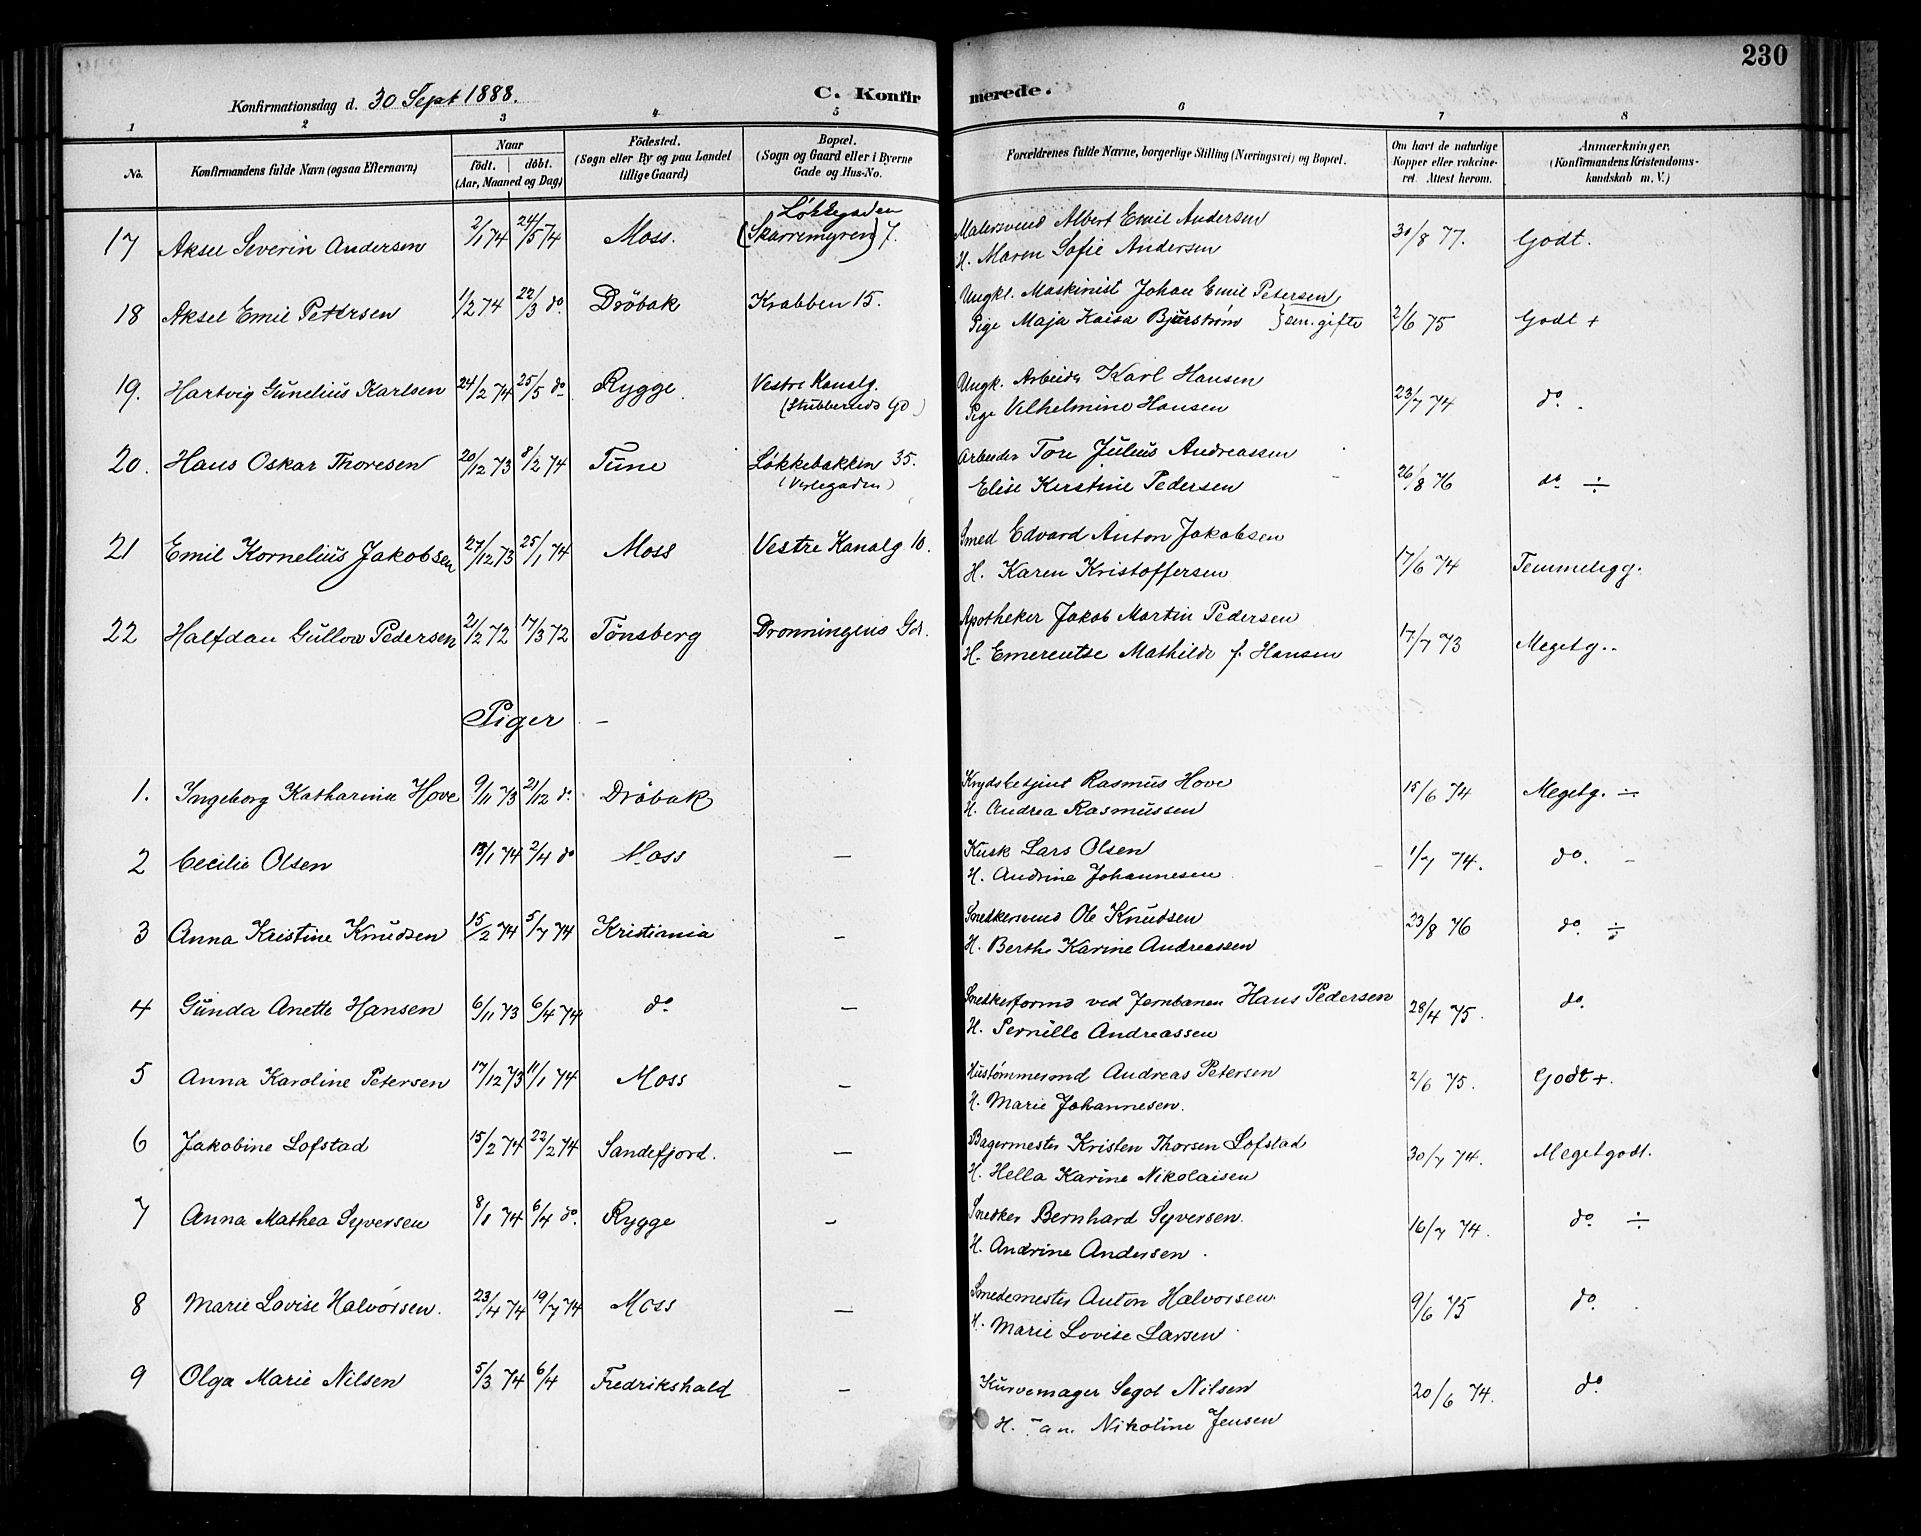 230
Konfirmationsdag d. 30 Sept 1888.
C. Konfirmerede.
1 2 3 4 5 6 7 8
No. Konfirmandens fulde Navn (ogsaa Efternavn) Naar födt. döbt. (Aar, Maaned og Dag) Födested. (Sogn eller By og paa Landet tillige Gaard) Bopæl. (Sogn og Gaard eller i Byerne Gade og Hus-No. Forældrenes fulde Navne, borgerlige Stilling (Næringsvei) og Bopæl. Om havt de naturlige Kopper eller vakcineret. Attest herom. Anmærkninger, (Konfirmandens Kristendomskundskab m. V.)
17 Aksel Severin Andersen 2/1 74 24/5 74 Moss. Løkkegaden (Skarremyren) 7. Malersvend Albert Emil Andersen
H. Maren Sofie Andersen 30/8 77. Godt.
18 Aksel Emil Petersen 1/2 74 22/3 do. Dröbak Krabben 15. Ungkl. Maskinist Johan Emil Petersen,
Pige Maja Kaisa Bjurström } sen. gifte 2/6 75 Godt +
19. Hartvig Gunelius Karlsen 24/2 74 25/5 do Rygge. Vestre Kanalg. (Stubberuds Gd) Ungk. Arbeider Karl Hansen
Pige Vilhelmine Hansen 23/7 74 do.
20. Hans Oskar Thoresen 20/12 73 8/2 74 Tune Løkkebakken 35. Arbeider Tore Julius Andreassen
Elise Kirstine Pedersen 26/8 76 do ÷
21 Emil Kornelius Jakobsen 27/12 73 25/1 74 Moss Vestre Kanalg 10. Smed Edvard Anton Jakobsen
H. Karen Kristoffersen 17/6 74 Temmeligg.
22 Halfdan Gullow Pedersen 21/2 72 17/3 72 Tönsberg Dronningens Gd. Apotheker Jakob Martin Pedersen
H. Emerentse Mathilde f. Hansen 17/7 73 Megetg..
Piger –
1. Ingeborg Katharina Hove 9/11 73 21/12 do. Dröbak Krydsbetjent Rasmus Hove
H. Andrea Rasmussen 15/6 74 Megetg. ÷
2 Cecilie Olsen 13/1 74 2/4 do Moss — Kusk Lars Olsen
H. Andrine Johannesen 1/7 74. do. –
3 Anna Kristine Knudsen 15/2 74 5/7 74 Kristiania – Snedkersvend Ole Knudsen
H. Berthe Karine Andreassen 23/8 76 do. ÷
4 Gunda Anette Hansen 6/11 73 6/4 74 do – Snedkerformd ved Jernbanen Hans Pedersen
H. Pernille Andreassen 28/4 75. do.
5 Anna Karoline Petersen 17/12 73 11/1 74 Moss – Hustømmermd Andreas Petersen
H. Marie Johannesen. 2/6 75. Godt +.
6 Jakobine Lofstad 15/2 74 22/2 74 Sandefjord. — Bagermester Kristen Thorsen Lofstad
H. Hella Karine Nikolaisen 30/7 74. Megetgodt.
7 Anna Mathea Syversen 8/1 74 6/4 do. Rygge – Snedker Bernhard Syversen.
H. Andrine Andersen. 16/7 74. do ÷
8 Marie Lovise Halvorsen. 23/4 74 19/7 74 Moss — Smedemester Anton Halvorsen
H. Marie Lovise Larsen 9/6 75 do.
9 Olga Marie Nilsen 5/3 74 6/4 Fredrikshald – Kurvemager Segol Nilsen
H. Nikoline Jensen 20/6 74. do.